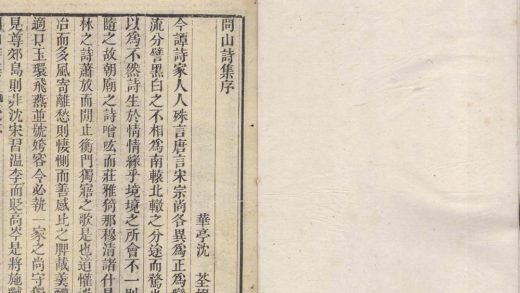 問山詩集序
華亭沈荃
今譚詩家人人殊言唐言宋宗尚各異爲正爲
流分譬黑白之不相爲南轅北轍之分途而騖
以爲不然詩生於情情緣乎境境之所會不一則
隨之故朝廟之詩噌吰而莊雅猗那穆清諸什是
林之詩蕭放而閒止衡門獨寤之歌是也道懽
冶而多風寄離愁則悽惻而善感比之脾蔵美
適口玉環飛燕並號姱容今必執一家之尚守
見尊郊島則非沈宋習温李而貶高岑是將施